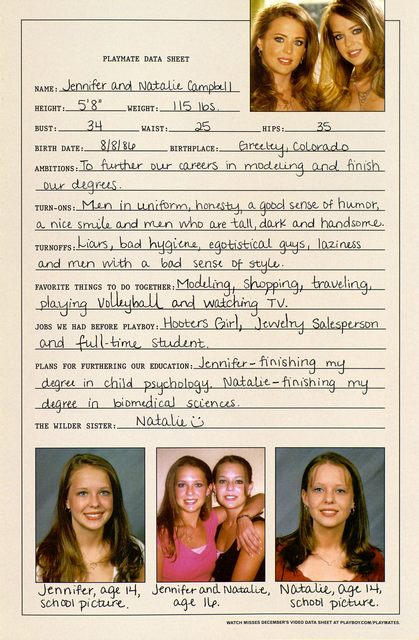 PLAYMATE DATA SHEET
NAME: Jennifer and Natalie Campbell
HEIGHT: 5'8" WEIGHT: 115 lbs.
BUST: 34 WAIST: 25 HIPS: 35
BIRTH DATE: 8/8/86 BIRTHPLACE: Greeley, Colorado
AMBITIONS: To further our careers in modeling and finish
our degrees.
TURN-ONS: Men in uniform, honesty, a good sense of humor,
a nice smile and men who are tall, dark and handsome.
TURNOFFS: Liars, bad hygiene, egotistical guys, laziness
and men with a bad sense of style.
FAVORITE THINGS TO DO TOGETHER: Modeling, shopping, traveling,
playing volleyball and watching TV.
JOBS WE HAD BEFORE PLAYBOY: Hooters Girl, Jewelry Salesperson
and full-time student.
PLANS FOR FURTHERING OUR EDUCATION: Jennifer-finishing my
degree in child psychology. Natalie-finishing my
degree in biomedical sciences.
THE WILDER SISTER: Natalie ☺
Jennifer, age 14,
school picture.
Jennifer and Natalie,
age 16.
Natalie, age 14,
school picture.
WATCH MISSES DECEMBER'S VIDEO DATA SHEET AT PLAYBOY.COM/PLAYMATES.